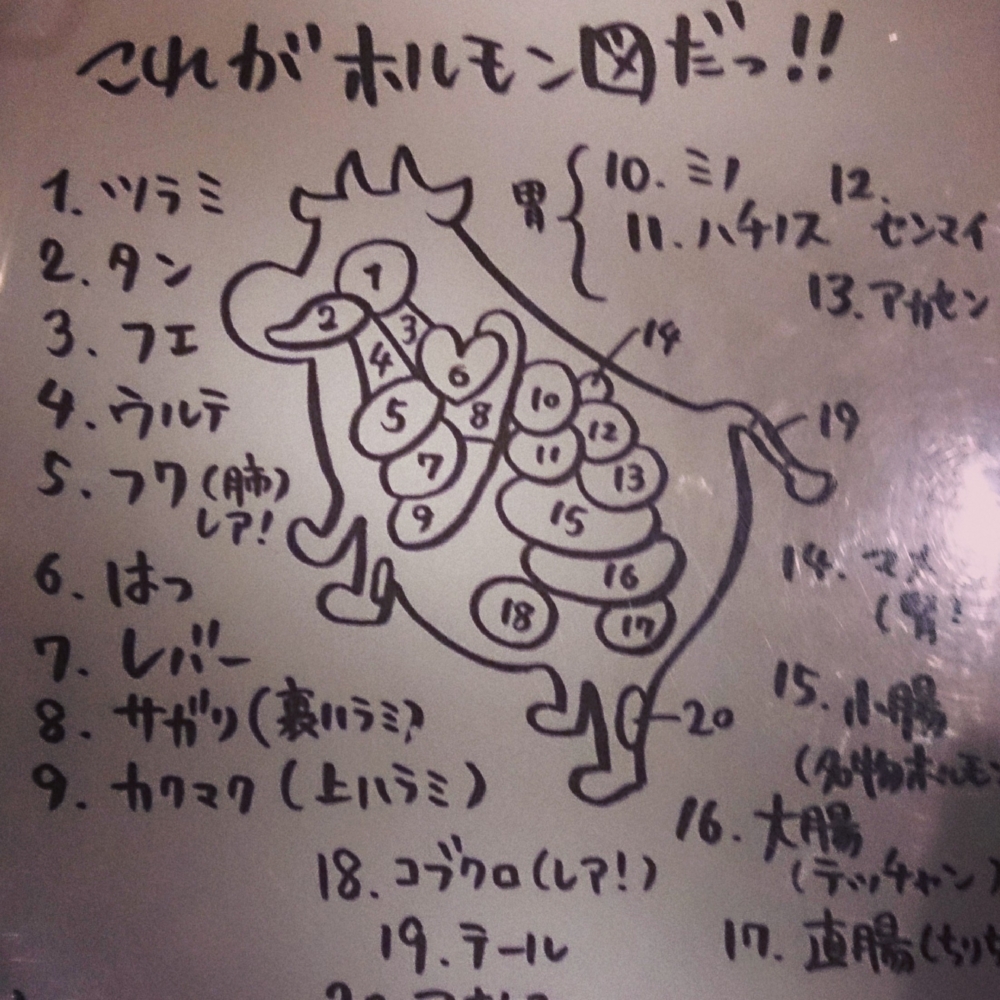 これがホルモン図だっ!!
1. ツラミ
2. タン
3. フエ
4. ウルテ
5. フワ(肺)
レア!
6. はつ
7. レバー
8. サガリ(裏ハラミ)
9. カクマク(上ハラミ)
胃
10. ミノ
11. ハチノス
12.
センマイ
13. アカセン
14
19
1
2
3
4
5
6
7
8
9
10
11
12
13
15
16
17
18
20
14. マメ
(腎
15. 小腸
(名物ホルモン
16. 大腸
(テッチャン)
17. 直腸(
18. コブクロ(レア!)
19. テール